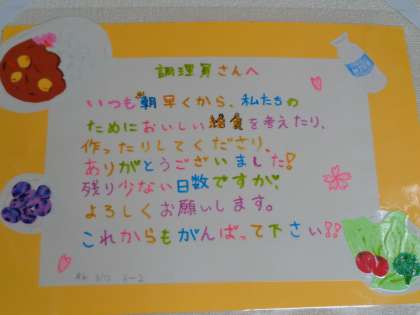 調理員さんへ
いつも朝早くから、私たちの
ためにおいしい給食を考えたり、
作ったりしてくださり、
ありがとうございました!
残り少ない日数ですが、
よろしくお願いします。
これからもがんばって下さい!!